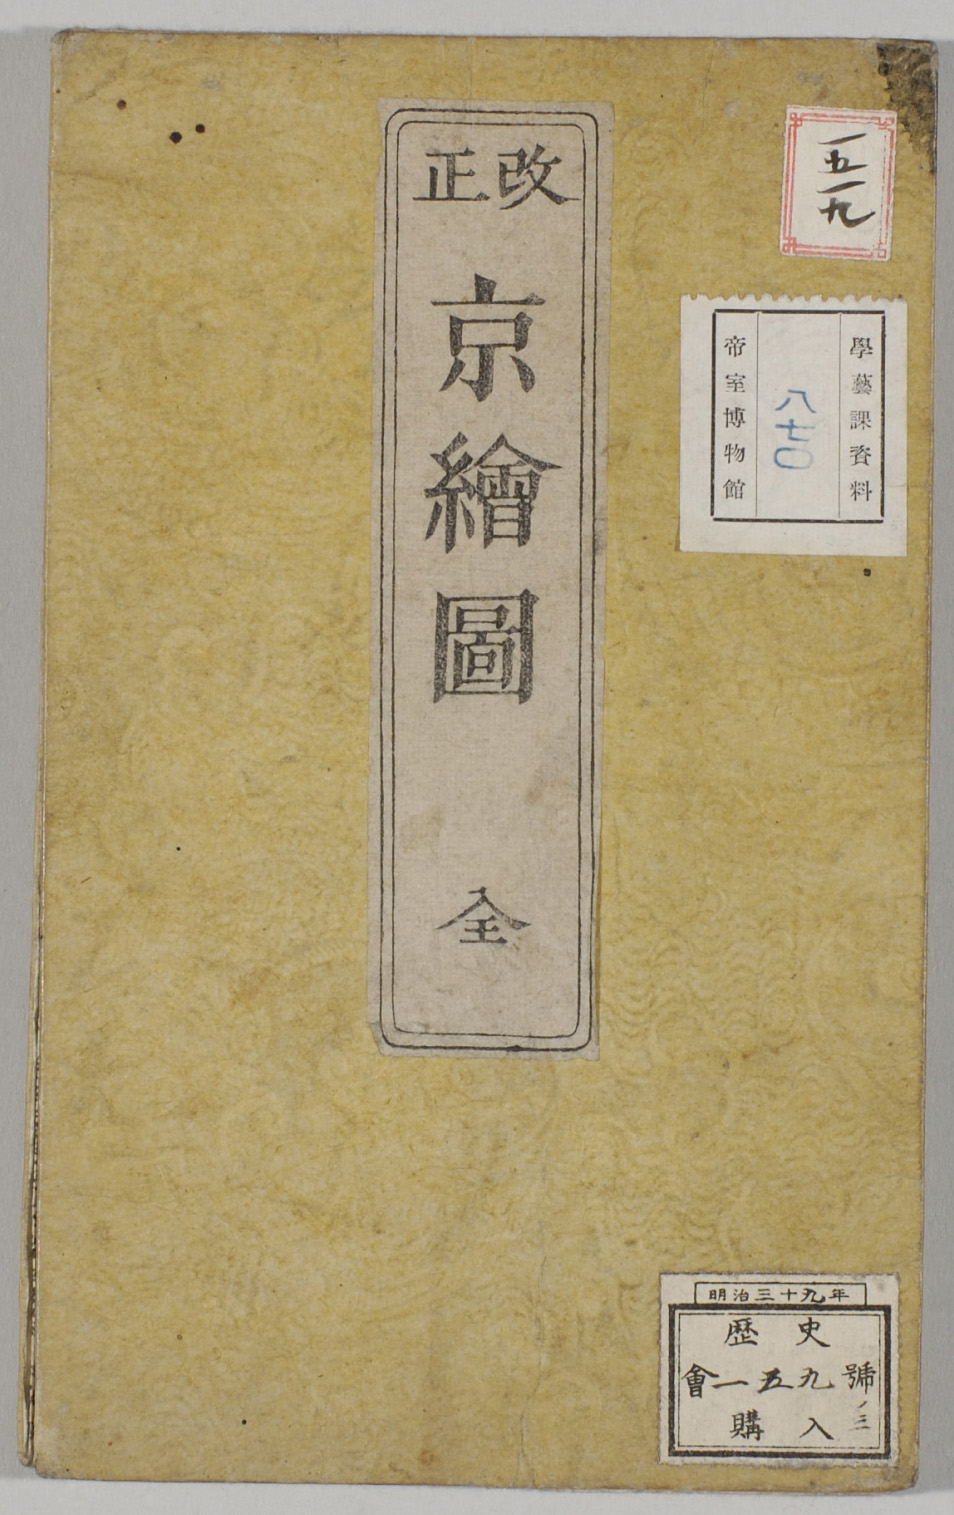 改正
京繪圖
全
一五一九
學藝課資料
八七〇
帝室博物館
明治三十九年
歴史
會一五九號ノ三
購入